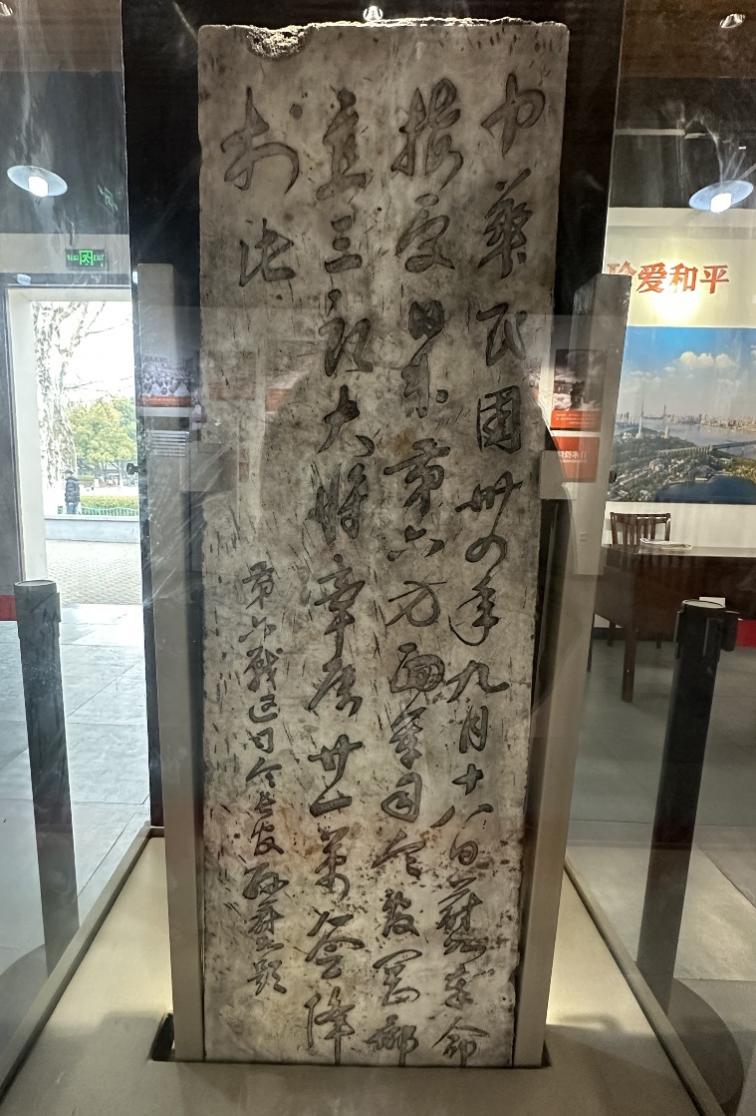 中華民國卅四年九月十八日蔚如奉命
接受日本第六方面軍司令官岡部
直三郎大將率屬廿一萬簽降
於此
第六戰區司令長官孫蔚如題
珍爱和平